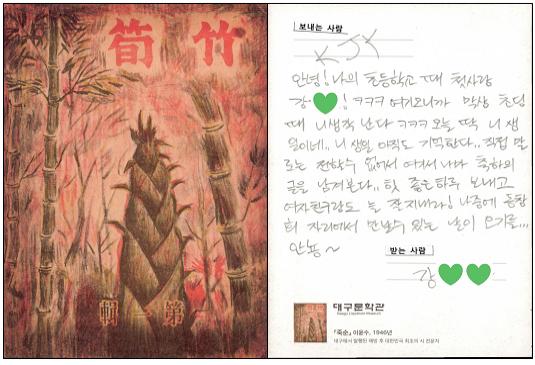 筍竹
輯一第
보내는 사람
KJY
안녕! 나의 초등학교 때 첫사랑
강 ! ㅋㅋㅋ 여기오니까 막상 초딩
때 니생각 난다 ㅋㅋㅋ 오늘 딱 니 생
일이네.. 니 생일 아직도 기억한다.. 직접 말
로는 전할수 없어서 여기서 나마 축하의
글을 남겨본다.. 힛 좋은하루 보내고
여자친구랑도 늘 잘 지내라! 나중에 동창
회 자리에서 만날수 있는 날이 오기를...
안뇽~
받는 사람
강
대구문학관
Daegu Literature Museum
『죽순』 이윤수, 1946년
대구에서 발행된 해방 후 대한민국 최초의 시 전문지